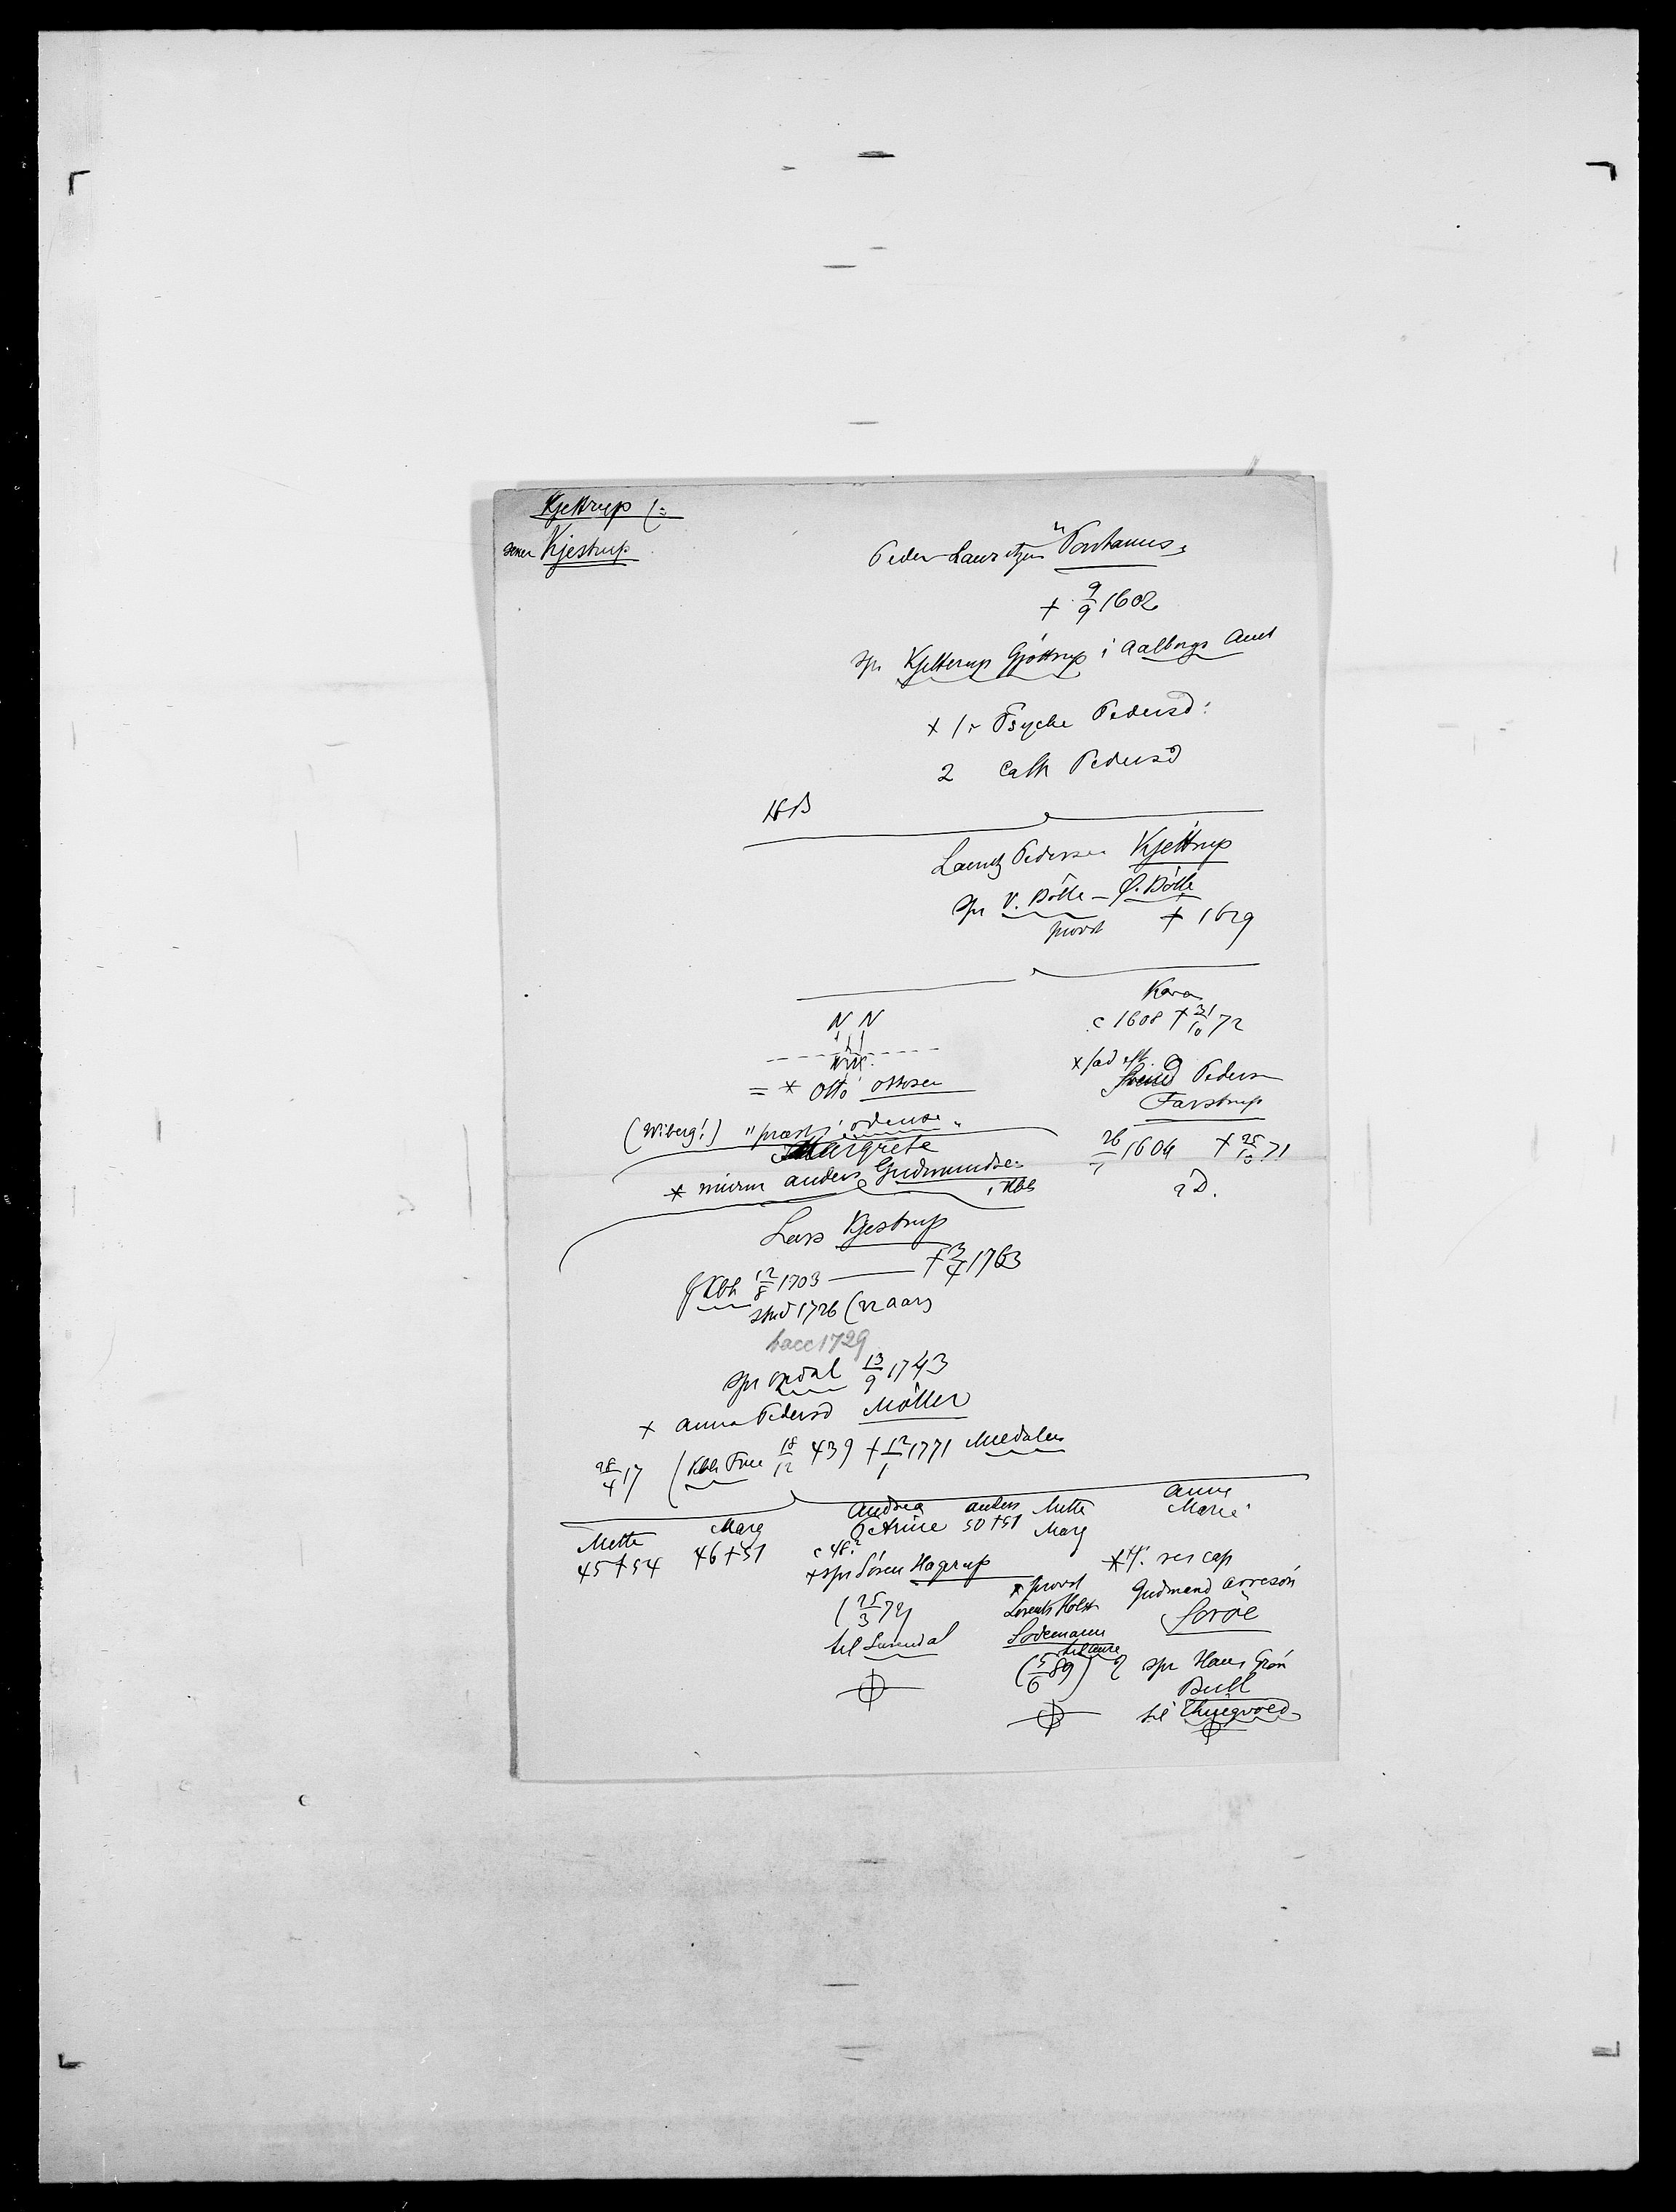 Kjettrup (:
senere Kjestrup
Peder Lauritzen "Pontanus"
† 9/9 1602
spr Kjetterup Gjøttrup i Aalborgs Amt
× 1. Psyche Pedersd:
2 Cath Pedersd
NB
Lauritz Pedersen Kjettrup
spr V. Bølle - Ø. Bølle
provst † 1629
N N
Karen
c 1608 † 21/10 72
= * Otto Ottosen
Peders
Farstrup
(Wiberg!) "præst i Odense"
26/ 1604 † 25/10 71
Margrete
* murm Anders Gudmundsen
i Kbh
2 D.
Lars Kjestrup
f Kbh 12/8 1703 — † 3/4 1763
stud 1726 (22 aar)
bacc 1729
spr Opdal 13/9 1743
× Anna Pedersd Möller
28/4 17 (Kbh Frue 18/12 439) † 12/1 1771 Meldalen
Mette
45 † 54
Marg
46 † 51
Andrea
Petrine
c 48?
* spr Sören Hagerup
(25/3 72)
til Surendal
Anders
50 † 51
Mette
Marg
* provst
Lorents Holst
Sodemann
til Aure
(5/6 89)
Anne
Marie
* 1. res cap
Gudmand Arresön
Soröe
2 spr Hans Grön
Bull
til Thingvold